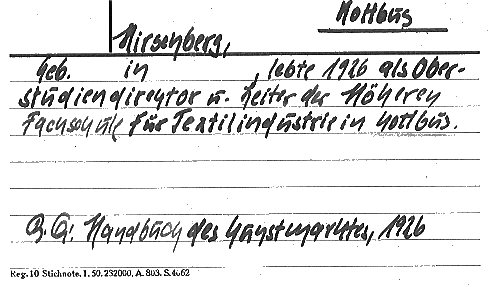 Kottbus
Hirschberg,
Geb. in , lebte 1926 als Ober-
studiendirektor u. Leiter der Höheren
Fachschule für Textilindustrie in Kottbus.
Q.A: Handbuch des Kunstmarktes, 1926
Reg. 10 Stichnote. 1. 50. 232000. A. 803. S. 4662